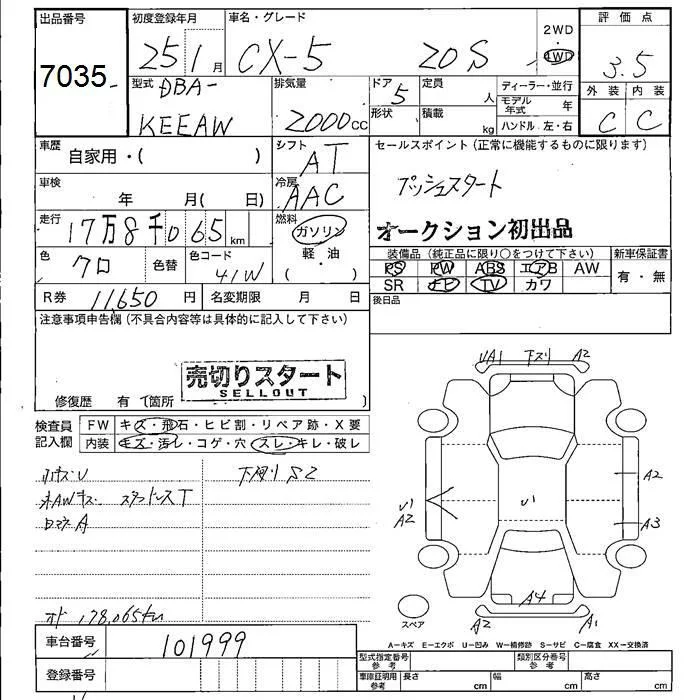 出品番号 初度登録年月 車名・グレード 2WD 評価点
7035 25 1月 CX-5 20S 4WD 3.5
型式 DBA- 排気量 ドア 5 定員 人 ディーラー・並行 外装 内装
KEEAW 2000cc 形状 積載 kg モデル年式 年 C C
ハンドル 左・右
車歴 自家用・( ) シフト AT セールスポイント(正常に機能するものに限ります)
車検 年 月( 日) 冷房 AAC プッシュスタート
走行 17万8千065km 燃料 ガソリン オークション初出品
軽・油
( )
装備品(純正品に限り○をつけて下さい) 新車保証書
色 クロ 色替 色コード 41W PS PW ABS エアB AW 有・無
SR ナビ TV カワ
R券 11650円 名変期限 月 日 後日品
注意事項申告欄(不具合内容等は具体的に記入して下さい)
売切りスタート
SELLOUT
修復歴 有(箇所 )
検査員記入欄 FW キズ・飛石・ヒビ割・リペア跡・X要
内装 キズ・汚レ・コゲ・穴 スレ・キレ・破レ
UA1 下スリ A2
下廻りS2
スタッドレスT
A2
U1
A2
U1
A3
A4
A2 A1
スペア
オド 178,065km
A=キズ E=エクボ U=凹み W=補修跡 S=サビ C=腐食 XX=交換済
車台番号 101999
型式指定番号 参考 類別区分番号 参考
登録番号 車庫証明用 参考 長さ cm 幅 cm 高さ cm